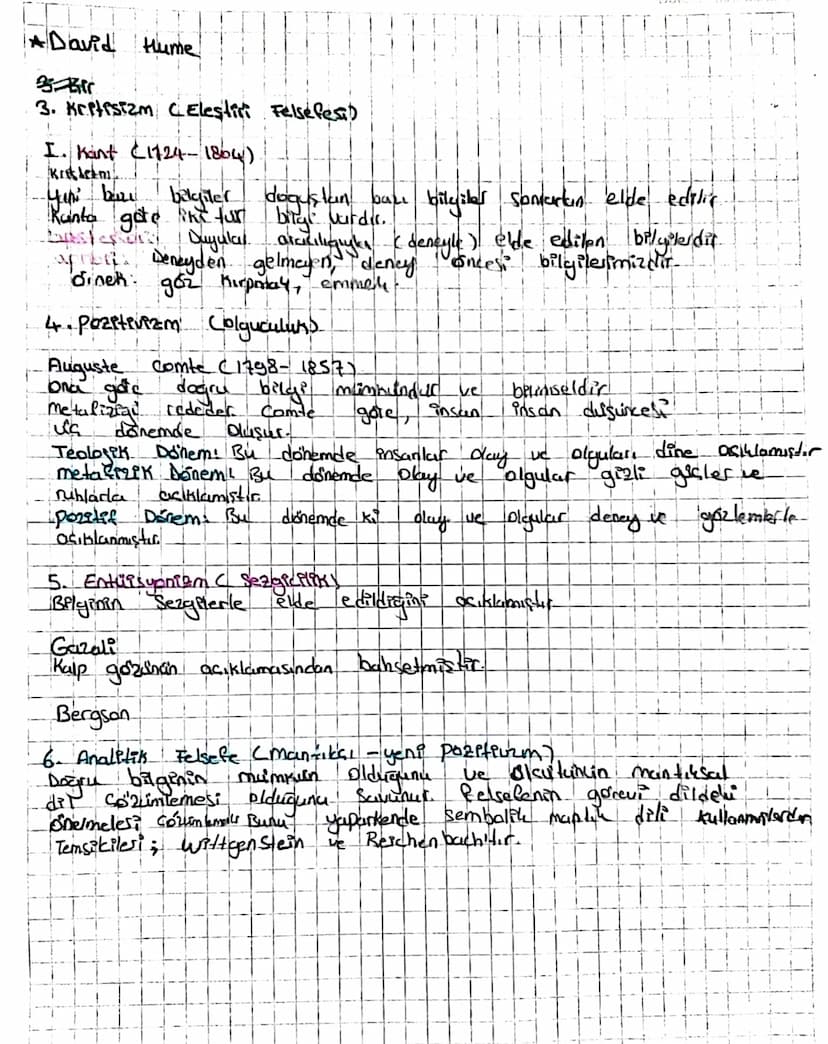 *David Hume
3. Bir
3. Kritisizm (Eleştiri Felsefesi)
I. Kant (1724-1804)
Yani bazı bilgiler doğuştan bazı bilgiler sonradan elde edilir
Kanta göre iki tür bilgi vardır.
Duyular aracılığıyla (deneyle) elde edilen bilgilerdir
Deneyden gelmeyen, deney öncesi bilgilerimizdir.
Örnek: göz kırpmay, emmek.
4. Pozitivizm (Olguculuk)
Auguste Comte (1798-1857)
Ona göre doğru bilgi mümkündür ve bilimseldir
metafiziği reddeder Comte göre, insan insan düşüncesi
üç dönemde oluşur.
Teolojik Dönem: Bu dönemde insanlar olay ve olguları dine açıklamıştır
metafizik Dönem: Bu dönemde olay ve olgular gizli güçler ve
ruhlarla açıklamıştır
pozitif Dönem: Bu dönemde ki olay ve olgular deney ve gözlemlerle
açıklanmıştır.
5. Entüisyonizm (Sezgicilik)
Bilginin Sezgilerle elde edildiğini açıklamıştır
Gazali
Kalp gözünün açıklamasından bahsetmiştir.
Bergson
6. Analitik Felsefe (mantıkçı - yeni pozitivizm)
Doğru bilginin mümkün olduğunu ve ölçütünün mantıksal
dil çözümlemesi olduğunu savunur. Felsefenin görevi dildeki
önermeleri Bunu yaparkende sembolik dili kullanmışlardır
Temsilcileri; Wittgenstein ve Reichenbachtır.